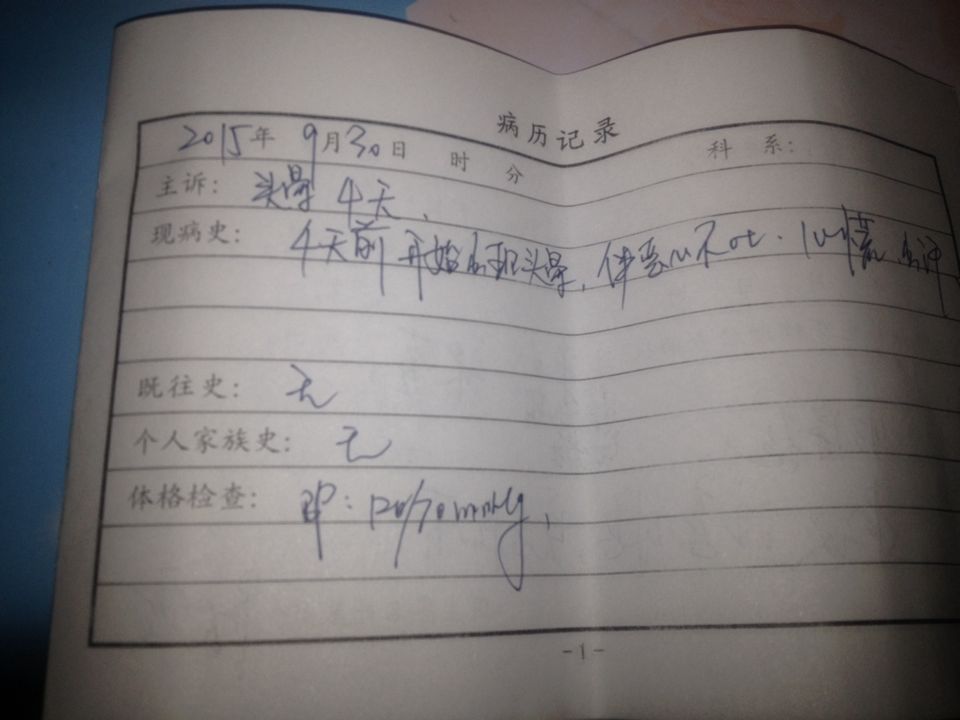 病历记录
2015年 9月30日 时 分 科 系:
主诉: 头晕 4天,
现病史: 4天前开始出现头晕,伴恶心不吐.心慌
既往史: 无
个人家族史: 无
体格检查: BP: 120/70mmHg,
-1-